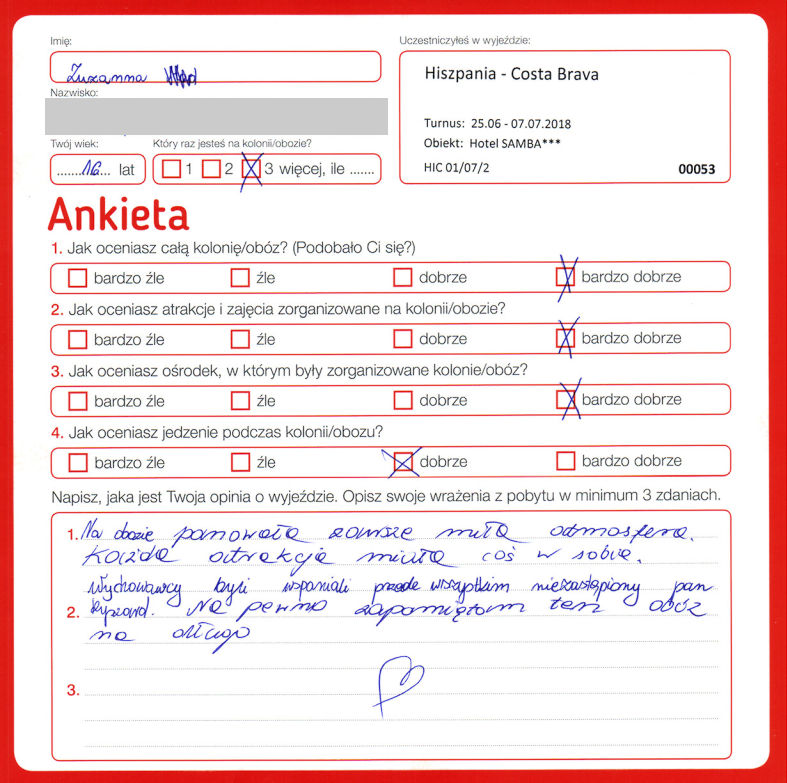 Imię:
Zuzanna
Nazwisko:
Twój wiek:
.......16... lat
Który raz jesteś na kolonii/obozie?
1 2 3 więcej, ile .......
Uczestniczyłeś w wyjeździe:
Hiszpania - Costa Brava
Turnus: 25.06 - 07.07.2018
Obiekt: Hotel SAMBA***
HIC 01/07/2 00053
Ankieta
1. Jak oceniasz całą kolonię/obóz? (Podobało Ci się?)
bardzo źle źle dobrze bardzo dobrze
2. Jak oceniasz atrakcje i zajęcia zorganizowane na kolonii/obozie?
bardzo źle źle dobrze bardzo dobrze
3. Jak oceniasz ośrodek, w którym były zorganizowane kolonie/obóz?
bardzo źle źle dobrze bardzo dobrze
4. Jak oceniasz jedzenie podczas kolonii/obozu?
bardzo źle źle dobrze bardzo dobrze
Napisz, jaka jest Twoja opinia o wyjeździe. Opisz swoje wrażenia z pobytu w minimum 3 zdaniach.
1. Na obozie panowała zawsze miła atmosfera.
Każda atrakcja miała coś w sobie.
Wychowawcy byli wspaniali przede wszystkim niezastąpiony pan
2. Ryszard. Na pewno zapamiętam ten obóz
na długo
3.